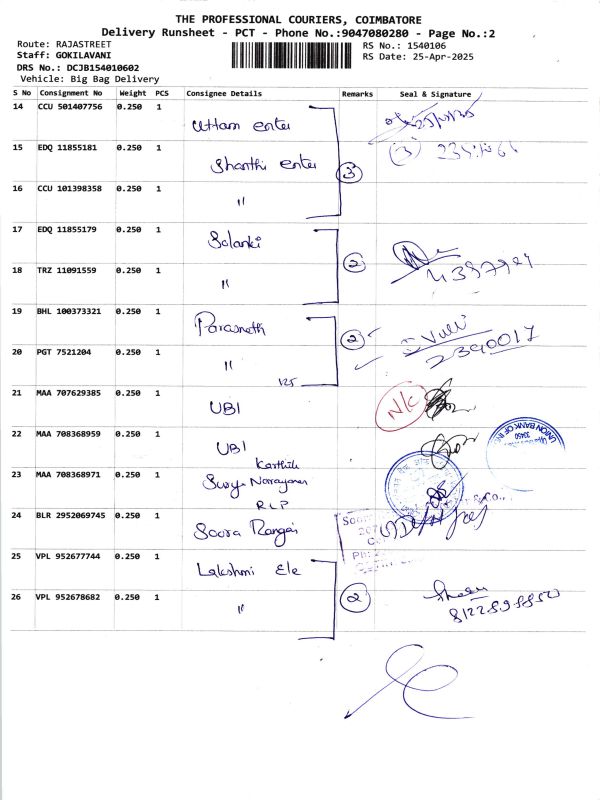 THE PROFESSIONAL COURIERS, COIMBATORE
Delivery Runsheet - PCT - Phone No.:9047080280 - Page No.:2
Route: RAJASTREET
RS No.: 1540106
Staff: GOKILAVANI
RS Date: 25-Apr-2025
DRS No.: DCJB154010602
Vehicle: Big Bag Delivery
S No Consignment No Weight PCS Consignee Details Remarks Seal & Signature
14 CCU 501407756 0.250 1 Uttam enter
15 EDQ 11855181 0.250 1 Shanthi enter 3
16 CCU 101398358 0.250 1 "
17 EDQ 11855179 0.250 1 Solanki 2
18 TRZ 11091559 0.250 1 "
19 BHL 100373321 0.250 1 Parasnath 2 Valli
2390017
20 PGT 7521204 0.250 1 "
125
21 MAA 707629385 0.250 1 UBI N/C
22 MAA 708368959 0.250 1 UBI
UNION BANK OF IN
33450
23 MAA 708368971 0.250 1 Karthik
Surya Narayanan
RLP
24 BLR 2952069745 0.250 1 Soora Rangai
25 VPL 952677744 0.250 1 Lakshmi Ele
26 VPL 952678682 0.250 1 " 2